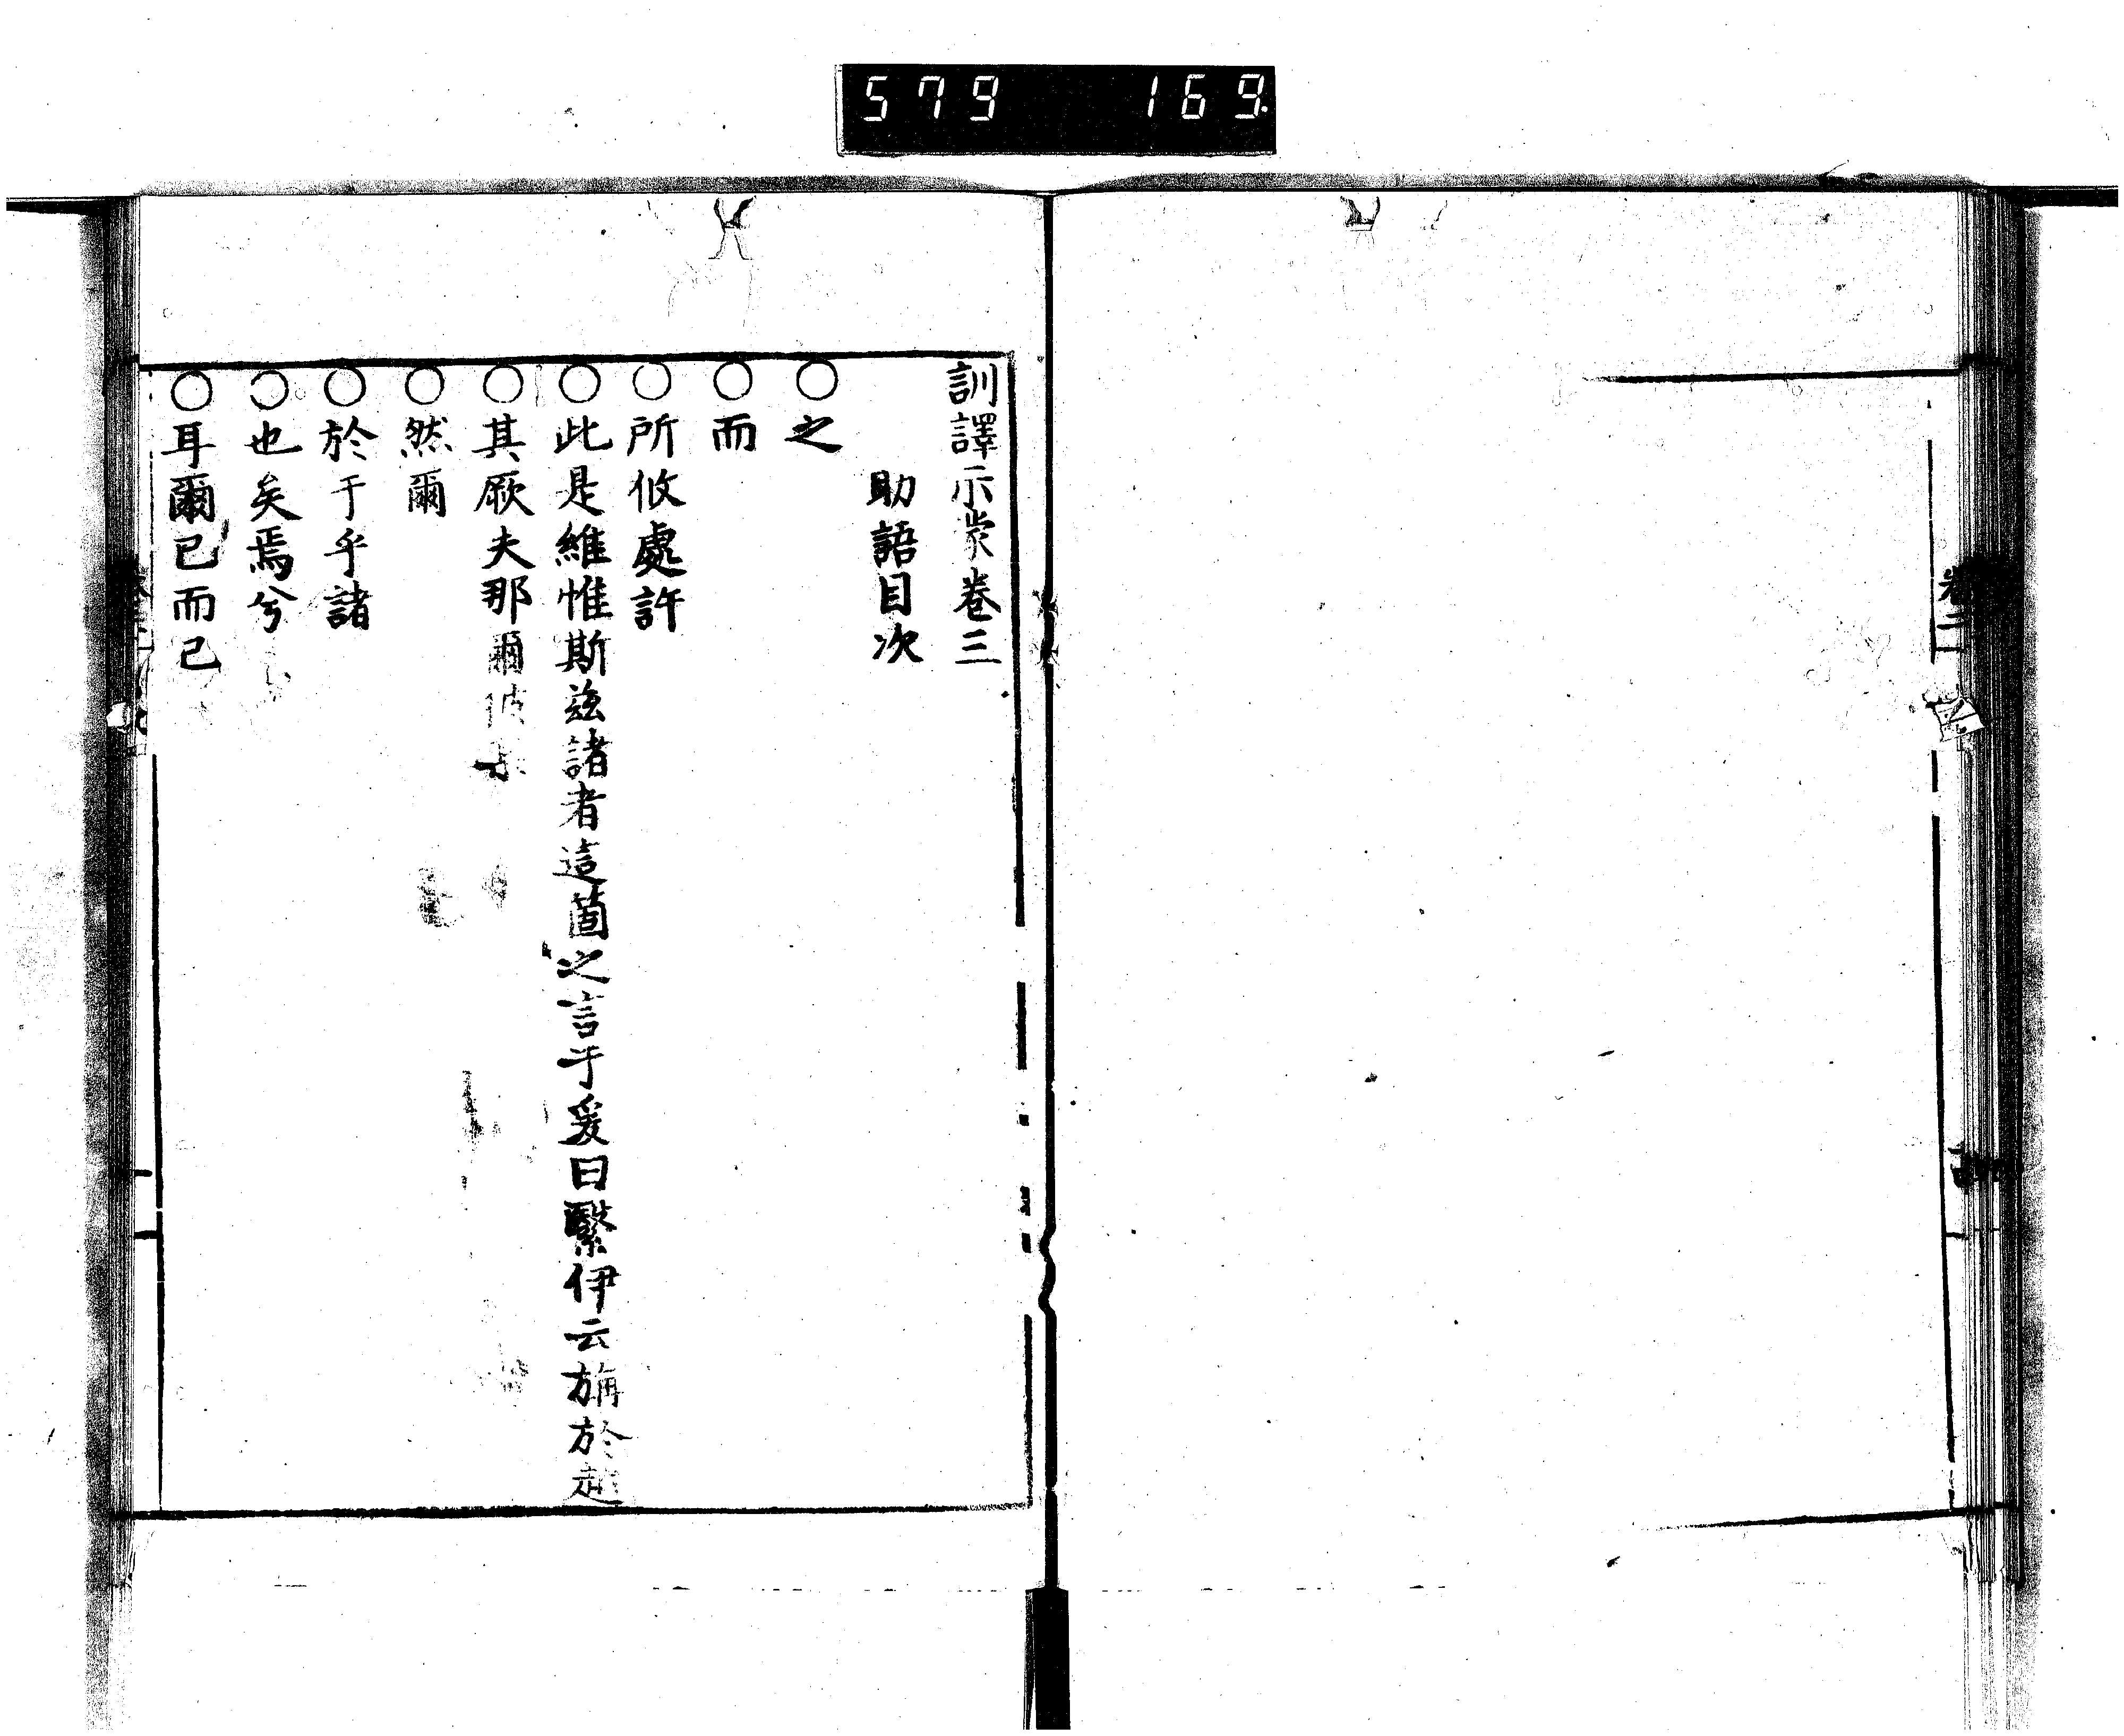 579 169.
卷二
訓譯示蒙卷三
助語目次
○之
○而
○所攸處許
○此是維惟斯茲諸者這箇之言于爰曰繄伊云旃於越
○其厥夫那爾彼
○然爾
○於于乎諸
○也矣焉兮
○耳爾已而已